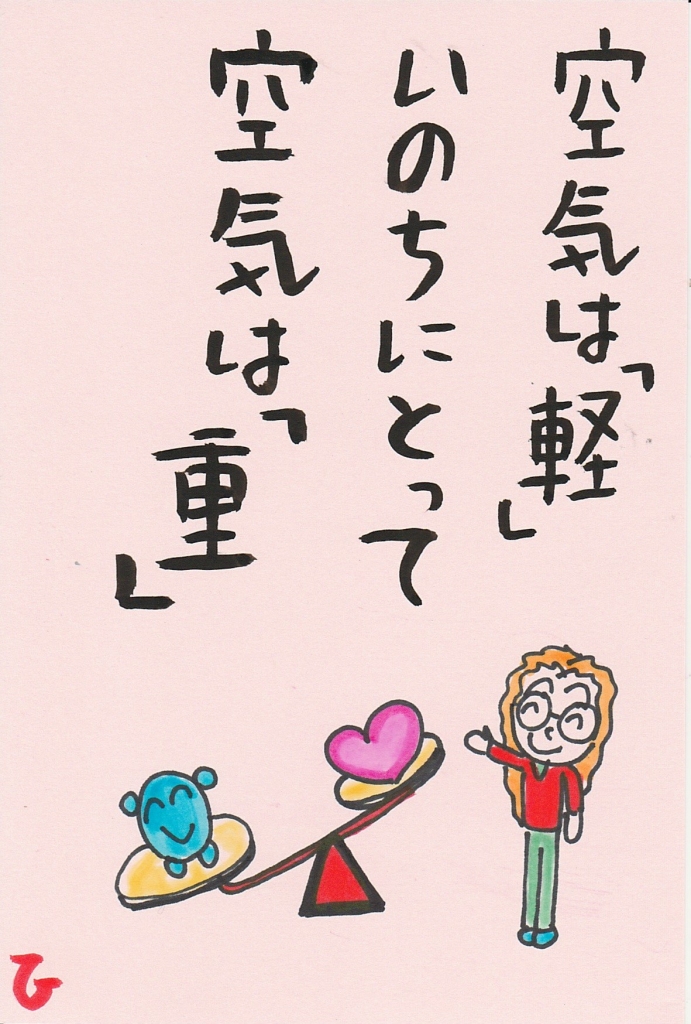 空気は「軽」
いのちにとって
空気は「重」
ひ